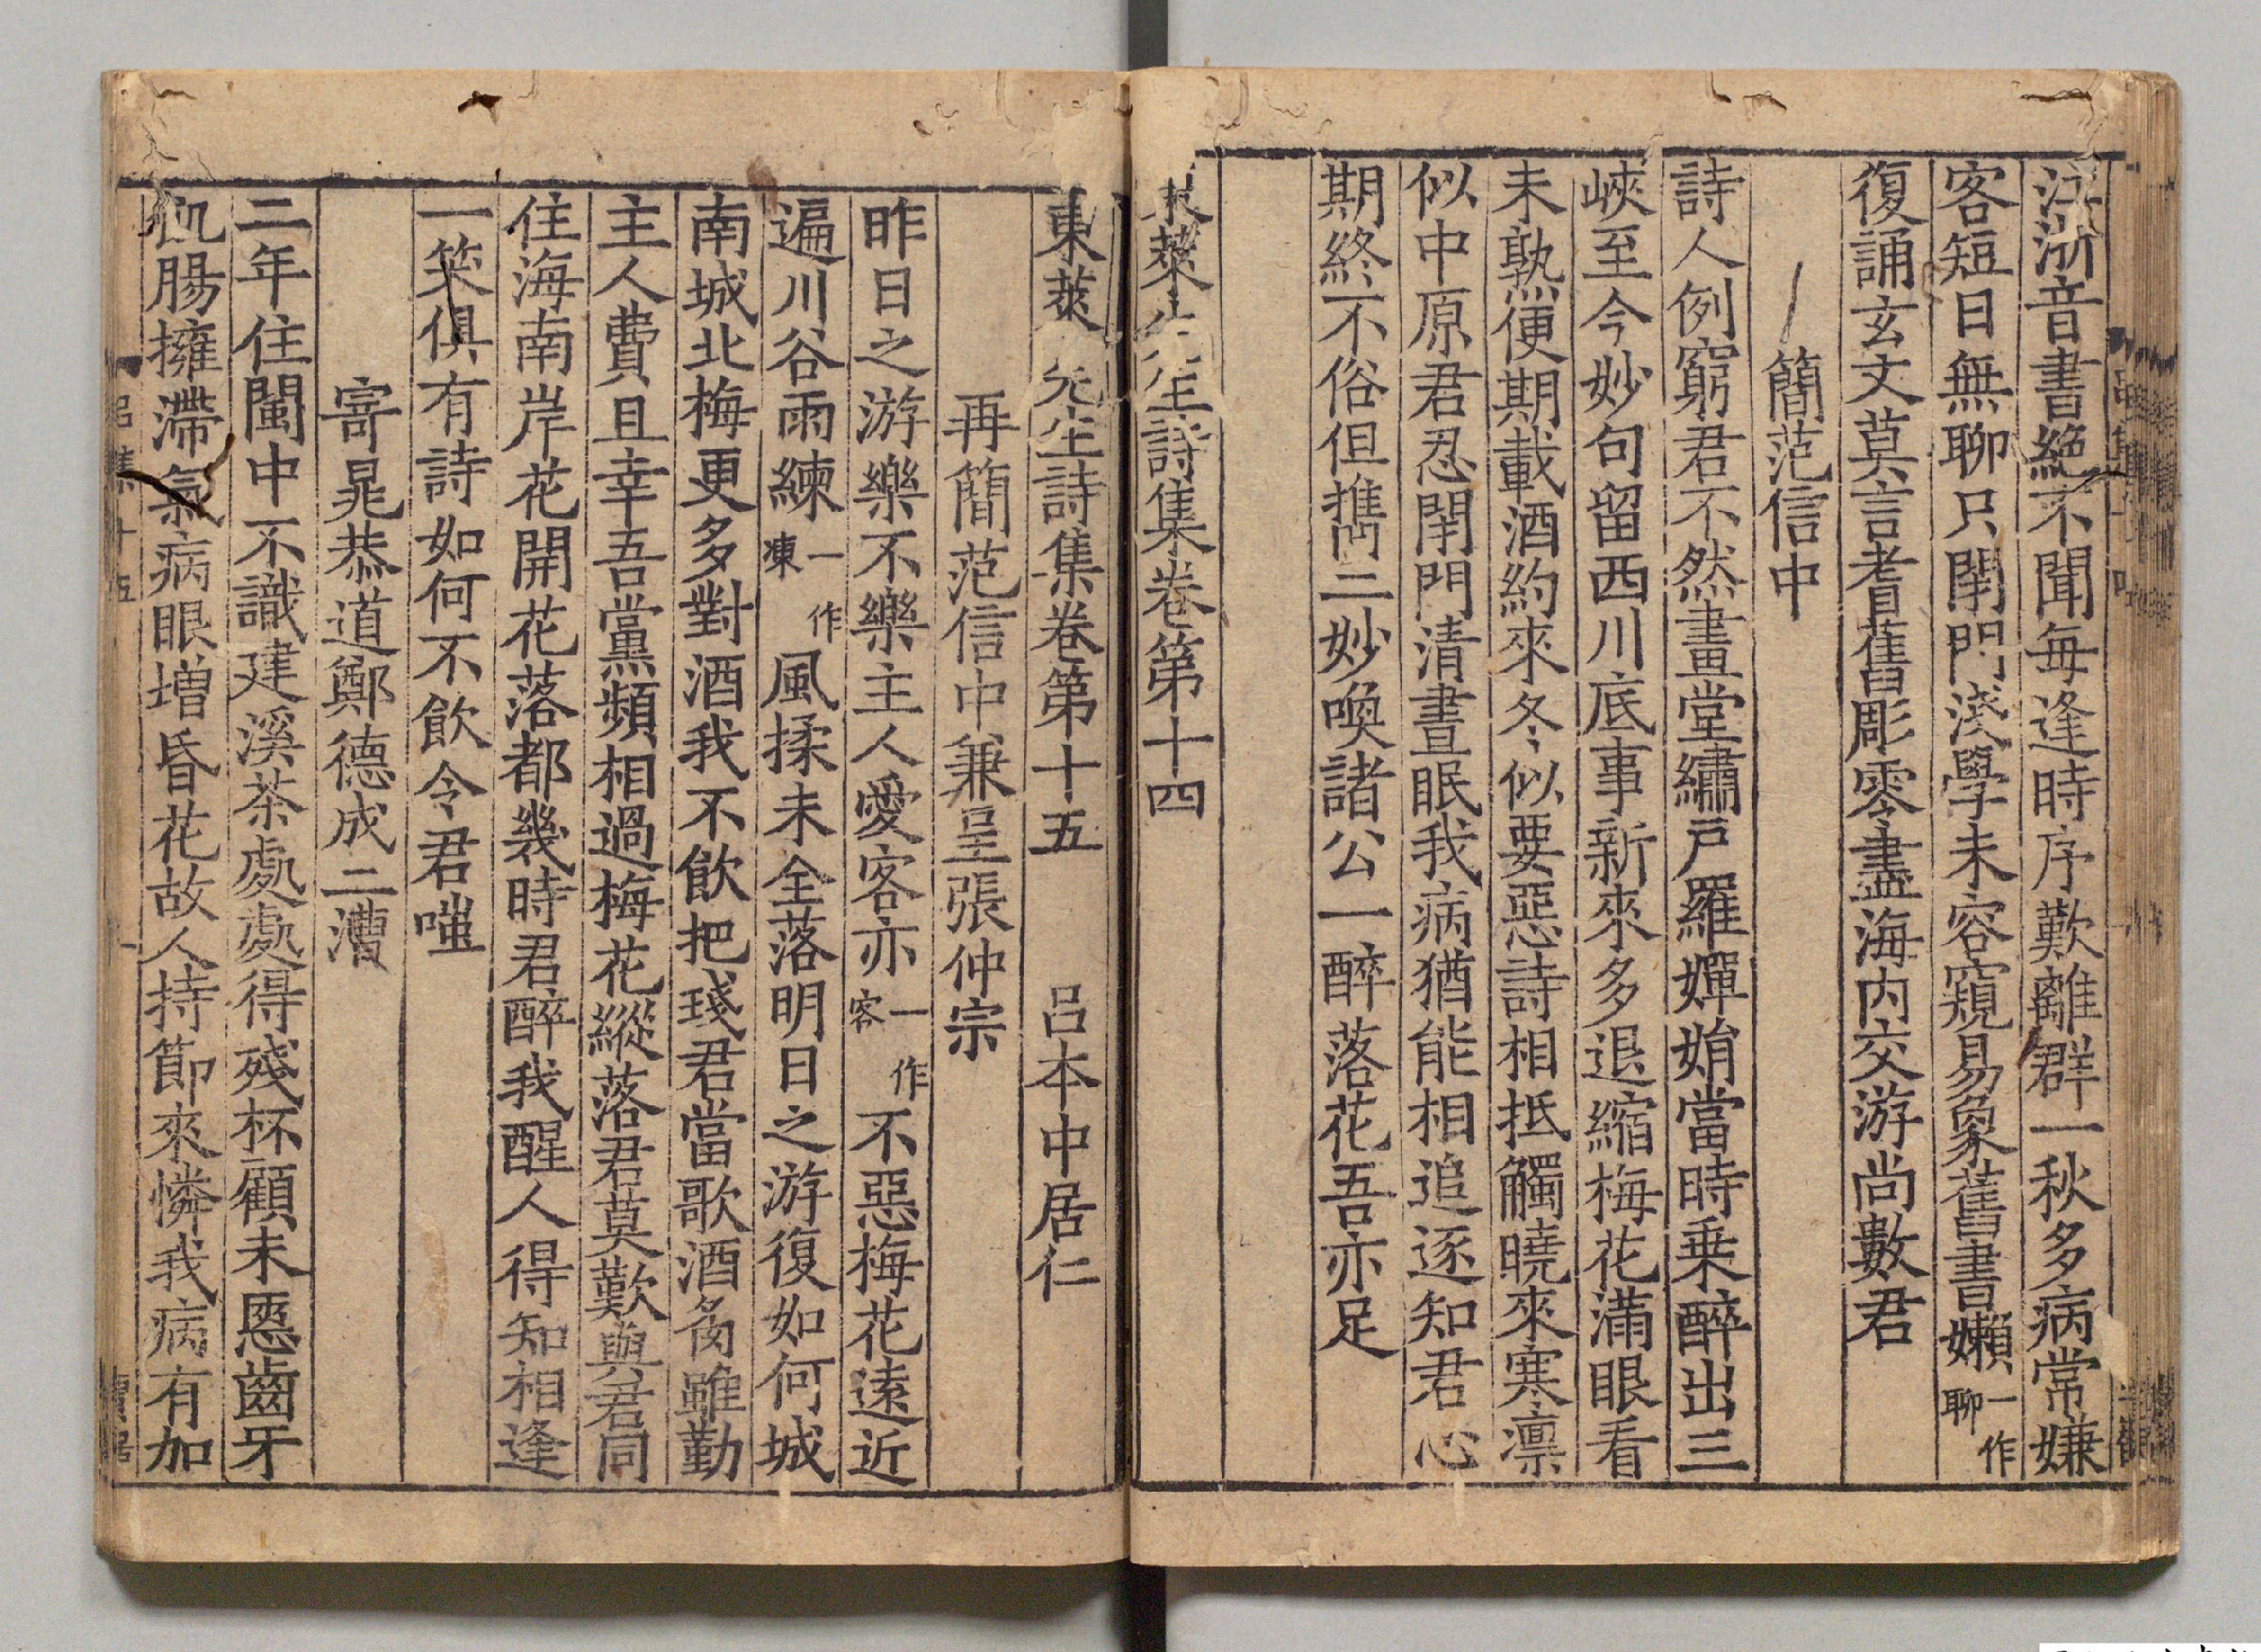 江浙音書絶不聞每逢時序歎離群一秋多病常嫌
客短日無聊只閉門淺學未容窺易象舊書嬾一作聊
復誦玄文莫言耆舊彫零盡海内交游尚數君
簡范信中
詩人例窮君不然畫堂繡戸羅嬋娟當時乗醉出三
峽至今妙句留西川底事新來多退縮梅花滿眼看
未孰便期載酒約來冬似要惡詩相抵觸曉來寒凛
似中原君忍閉門清晝眠我病猶能相追逐知君心
期終不俗但攜二妙喚諸公一醉落花吾亦足
東萊先生詩集卷第十四
東萊先生詩集卷第十五 吕本中居仁
再簡范信中兼呈張仲宗
昨日之游樂不樂主人愛客亦一作客不惡梅花遠近
遍川谷雨練一作凍風揉未全落明日之游復如何城
南城北梅更多對酒我不飲把琖君當歌酒肴雖勤
主人費且幸吾黨頻相過梅花縱落君莫歎與君同
住海南岸花開花落都幾時君醉我醒人得知相逢
一笑俱有詩如何不飲令君嗤
寄晁恭道鄭德成二漕
二年住閩中不識建溪茶處處得殘杯顧未慁齒牙
飢腸擁滯氣病眼増昏花故人持節來憐我病有加
吕集十五